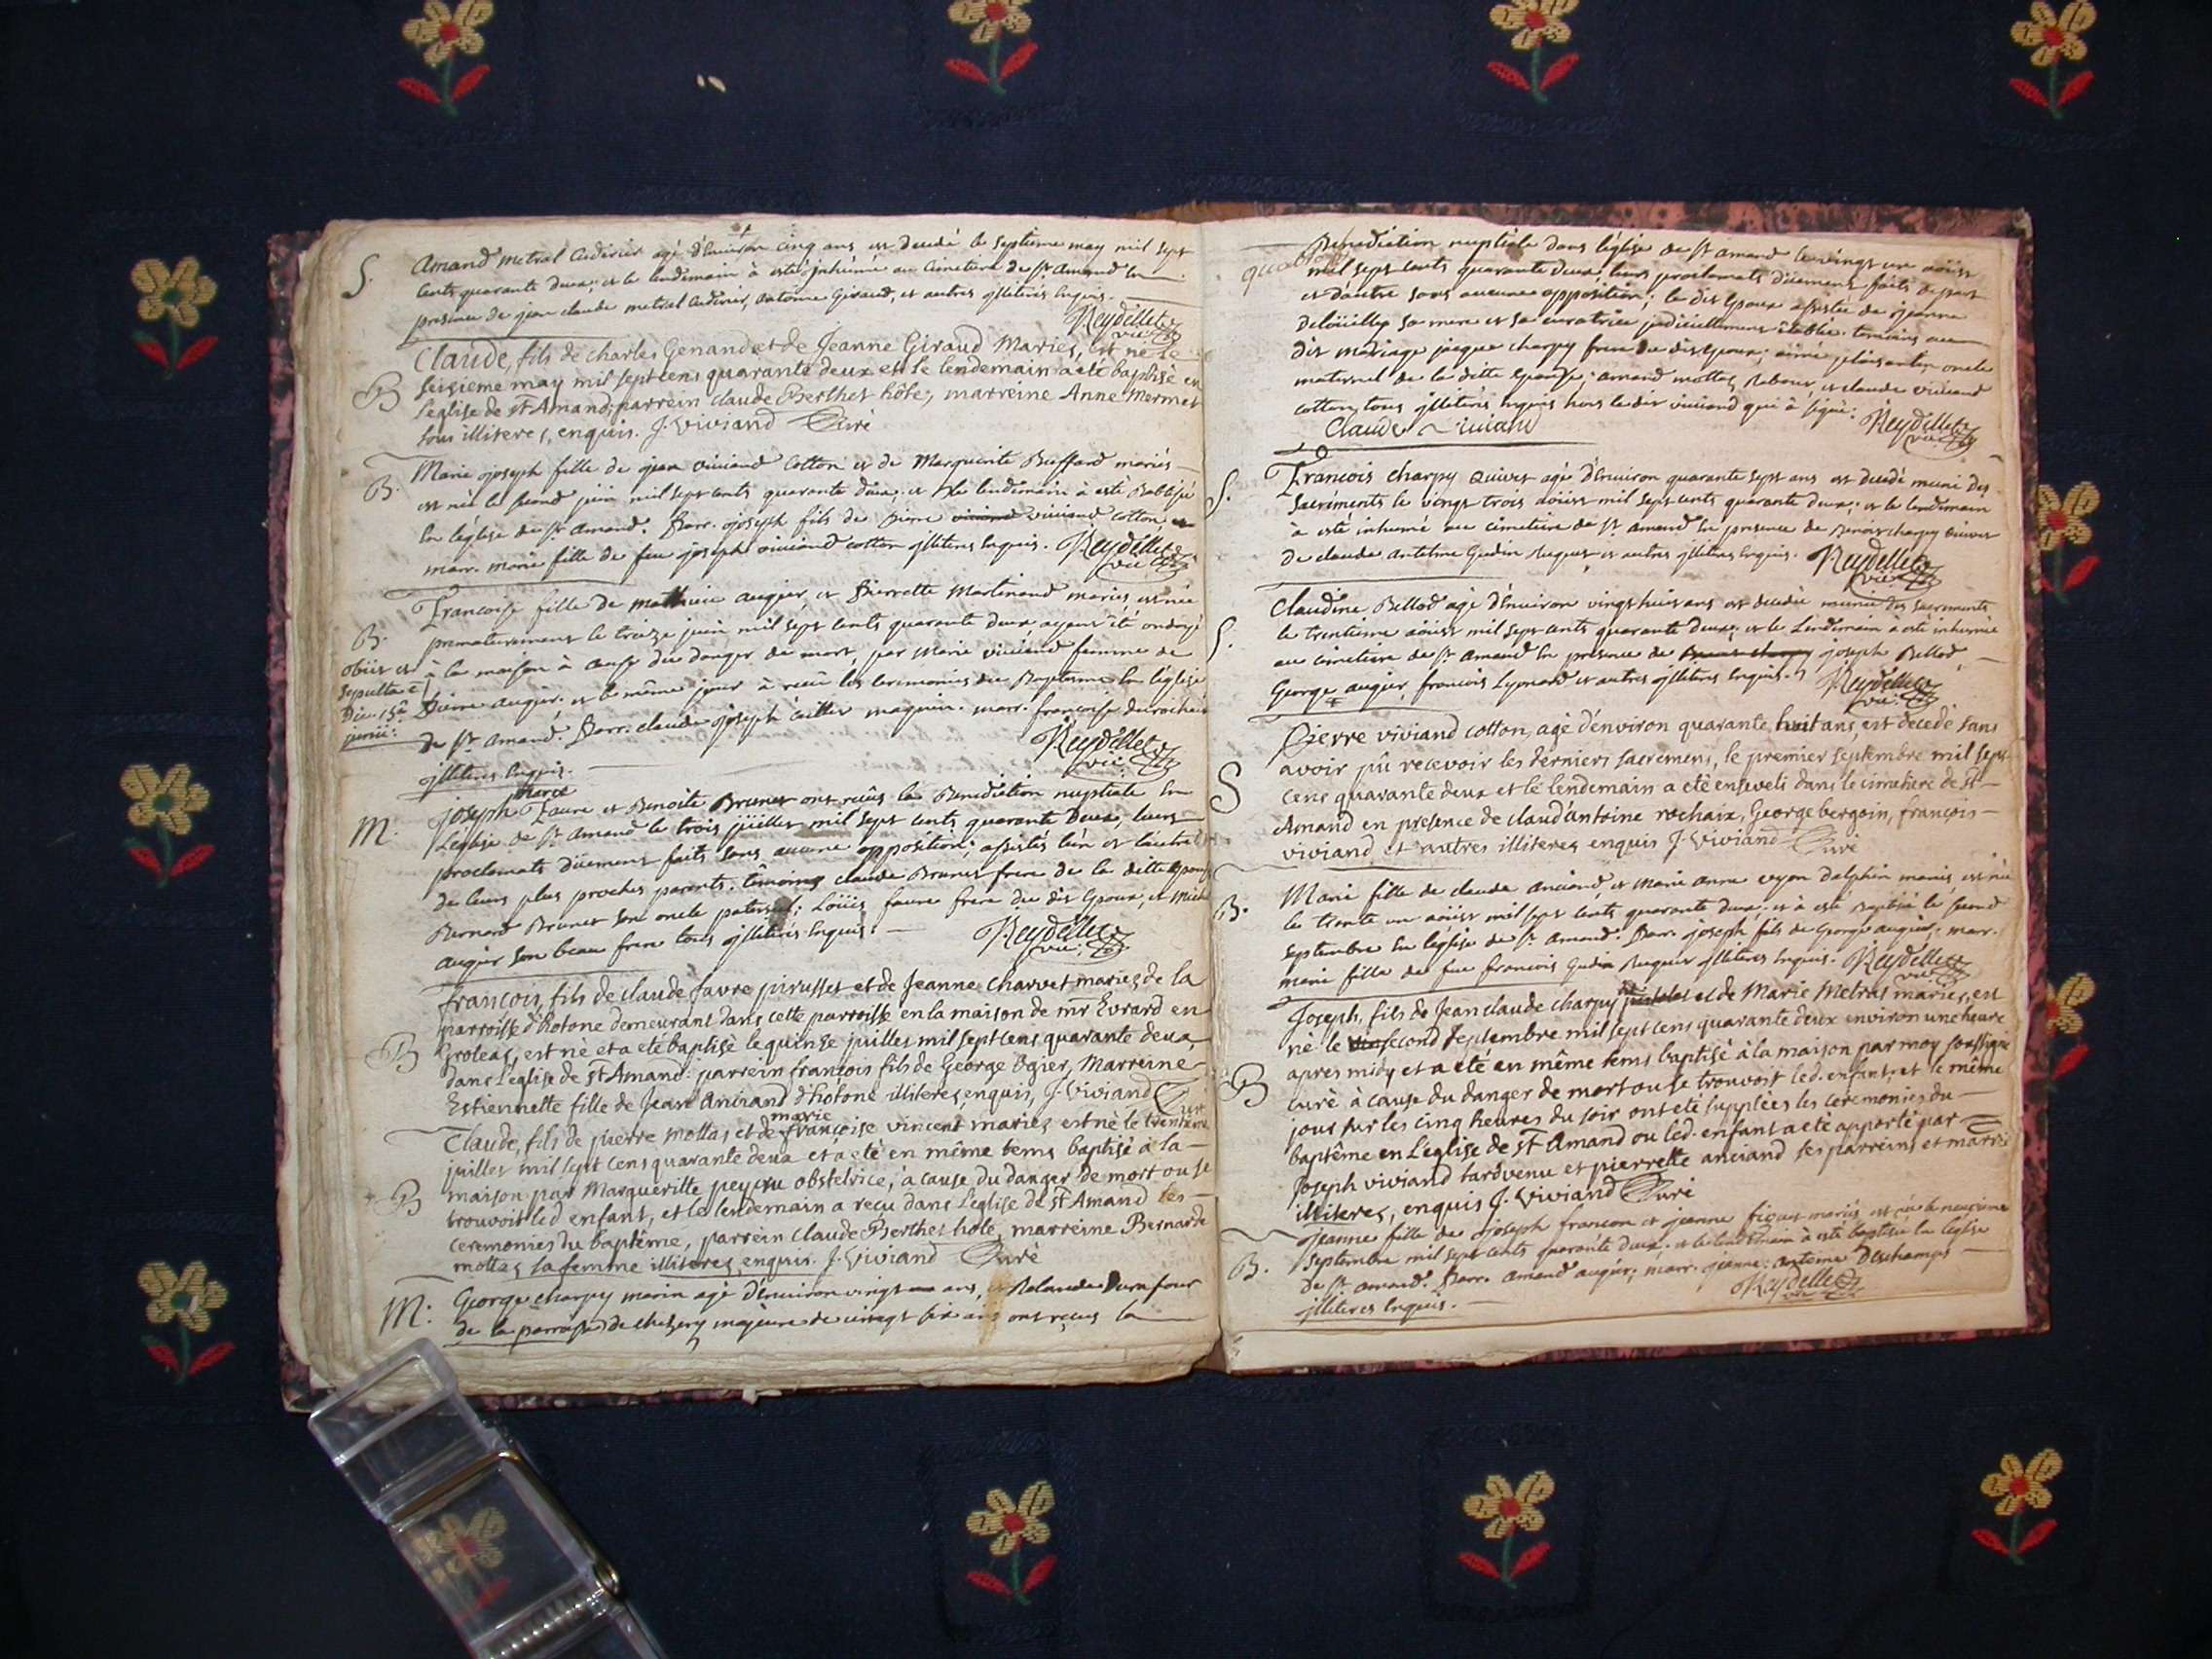 S. Amand metral Cudirier agé d'Environ cinq ans est decedé le septieme may mil sept
cents quarante deux; et le lendemain à esté inhumé au Cimetiere de st Amand En
presence de jean claude metral Cudirier, Antoine Giraud, et autres jlliterés Enquis.
Reydellet vic:
Claude, fils de charles Genand et de Jeanne Giraud Mariés, est né le
B seisieme may mil sept cens quarante deux et le lendemain a eté baptisé en
l'eglise de st Amand, parrein claude Berthet hôte, marreine Anne Mermet
tous illiteres, enquis. J. Viviand Curé
Marie joseph fille de jean viviand Cotton et de Marguerite Buffard mariés
B. est née le second juin mil sept cents quarante deux; et le lendemain à esté Babtisée
En l'église de st Amand. Parr. joseph fils de pierre viviand viviand cotton, et
marr. marie fille de feu joseph viviand cotton jlliteres Enquis. Reydellet vic:
Francoise fille de Mathieu augier, et Pierrette Martinand mariés est née
B. prematurement le treize juin mil sept cents quarante deux ayant été ondoyé
obiit et à la maison à cause du danger de mort, par Marie viviand femme de
sepulta e Pierre augier. et le même jour à recu les ceremonies du Baptesme En l'église
Die 15a de st Amand. Parr. claude joseph caillet magnin. marr. francoise durochat
junii: jlliteres Enquis.
Reydellet vic:
marce
M. joseph Faure et Benoite Brunet ont reçûs la Benediction nuptiale En
L'église de st Amand le trois jüillet mil sept cents quarante Deux, leurs
proclamats düement faits sans aucune opposition; assistés l'un et l'autre
de leurs plus proches parents. témoins claude Brunet frere de la ditte Epouse
Bernard Brunet son oncle paternel; Loüis faure frere du dit Epoux, et Mich
augier son beau frere tous jlliterés Enquis. Reydellet vic:
francois, fils de claude favre pirusset et de Jeanne charvet mariez de la
parroisse d'hotone demeurant dans cette parroisse en la maison de mr Evrard en
B Groleas, est né et a eté baptisé le quinze juillet mil sept cens quarante deux
dans l'eglise de st Amand: parrein francois fils de George Ogier, Marreine
Estiennette fille de Jean Anciand d'hotone illiteres, enquis, J. Viviand Curé
marie
Claude, fils de pierre mottas et de francoise vincent mariez est né le trentieme
juillet mil sept cens quarante deux et a eté en même tems baptisé à la
B maison par Marguerite peycru obstetrice, à cause du danger de mort ou se
trouvoit led enfant, et le lendemain a reçu dans l'eglise de st Amand les
ceremonies du baptême, parrein claude Berthet hôte, marreine Bernarde
mottas sa femme illiteres, enquis. J. Viviand Curé
M: George charpy marin agé d'Environ vingt ans, et Rolande Dunfour
de la parroisse de chezery majeure de vingt six ans ont reçus la
Benediction nuptiale dans l'église de st Amand le vingt un aöust
mil sept cents quarante deux, leurs proclamats düement faits de part
et d'autre sans aucune opposition; le dit Epoux assistée de jeanne
sa mere et sa curatrice judiciellement établie. temoins au
dit mariage jacque charpy frere du dit Epoux; oncle
maternel de la ditte Epouse; amand mottas et claude viviand
cotton, tous jlliterés Enquis hors le dit viviand qui à signé. Reydellet vic:
Claude Viviand
Francois charpy Quivet agé d'Environ quarante sept ans est decedé muni des
S. Sacréments le vingt trois aöust mil sept cents quarante deux; et le lendemain
à esté inhumé au cimetiere de st Amand En presence de Benoit charpy Quivet
de claude Antelme Gudin Ruquet, et autres jlliteres Enquis. Reydellet vic:
Claudine Bellod agé d'Environ vingt huit ans est decedée munie des sacrements
S. le trentieme aöust mil sept cents quarante deux; et le Lendemain à esté inhumée
au cimetiere de st Amand En presence de joseph Bellod,
George augier, francois Lyonard et autres jlliteres Enquis. Reydellet vic:
Pierre viviand cotton, agé d'environ quarante huit ans, est decedé sans
avoir pû recevoir les derniers sacremens, le premier septembre mil sept
S cens quarante deux et le lendemain a eté enseveli dans le cimetiere de st
Amand en presence de claud'antoine rochaix, George bergoin, françois
viviand et autres illiteres enquis J. Viviand Curé
Marie fille de claude Anciand, et Marie anne veyon Dalphin mariés est née
B. le trente un aöust mil sept cents quarante deux, et à esté Baptisée le second
Septembre En l'église de st Amand. Parr. joseph fils de George augier, marr.
marie fille de feu francois Gudin Ruquet jlliteres Enquis. Reydellet vic:
Joseph, fils de Jean claude charpy et de Marie Metras mariés, est
né le second septembre mil sept cens quarante deux environ une heure
apres midy et a eté en même tems baptisé à la maison par moy soussigné
B curé à cause du danger de mort ou se trouvoit led. enfant; et le même
jour sur les cinq heures du soir ont eté supplées les ceremonies du
baptême en L'eglise de st Amand ou led. enfant a eté apporté par
Joseph viviand tardvenu et pierrette anciand ses parreins et marreine
illiteres, enquis J. Viviand Curé
Jeanne fille de joseph francon et jeanne mariés est née le neuvieme
B. septembre mil sept cents quarante deux. et le lendemain à esté baptisée En l'église
de st Amand. Parr. Amand augier; marr. jeanne antoine Deschamps
jlliteres Enquis. Reydellet vic: